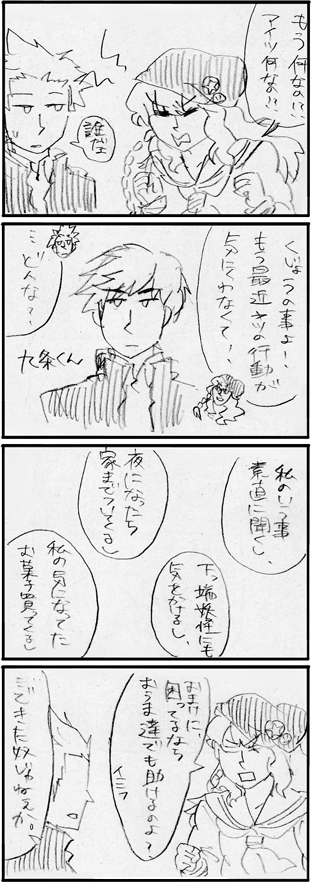 もう何なの!?
アイツ何なの!?
誰だよ
くじょうの事よ!!
もう最近ヤツの行動が
気にくわなくて!!
どんな?
九条くん
私のいう事
素直に聞くし、
下っ端妖怪にも
気をかけるし、
夜になったら
家までついてくるし
私の気になってた
お菓子買ってくるし
おまけに、
困ってるなら
おうま達でも助けるのよ?
イミフ
できた奴じゃねぇか。